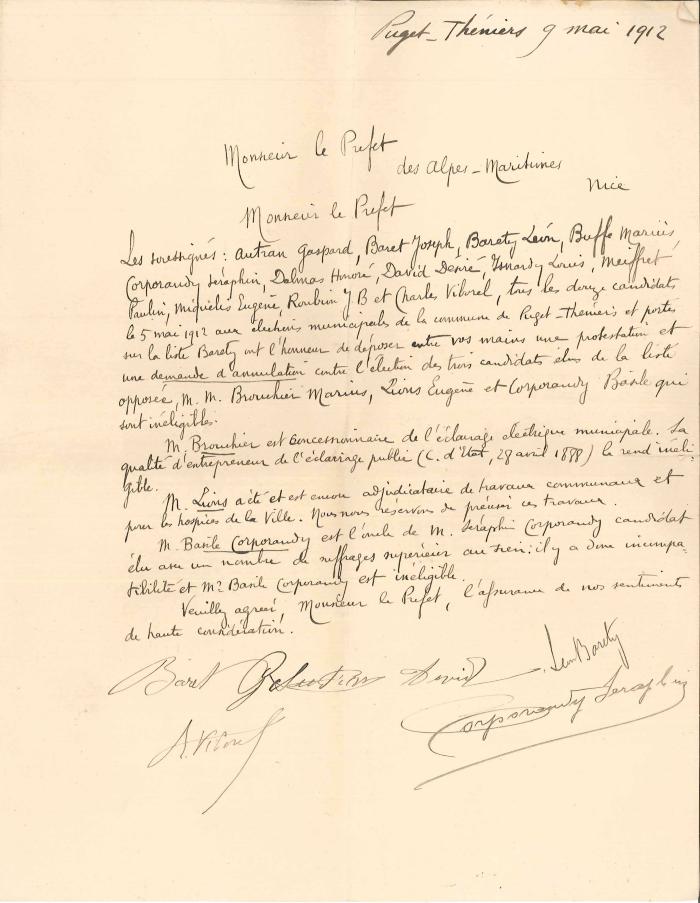 Puget-Théniers 9 mai 1912
Monsieur le Prefet
des Alpes-Maritimes
Nice
Monsieur le Prefet
Les soussignés : Autran Gaspard, Baret Joseph, Barety Léon, Buffe Marius
Corporandy Séraphin, Dalmas Honoré, David Désiré, Isnardy Louis, Meiffret
Paulin, Miquelis Eugène, Roubin J.B et Charles Viborel, tous les douze candidats
le 5 mai 1912 aux élections municipales de la commune de Puget-Theniers et portés
sur la liste Barety ont l'honneur de déposer entre vos mains une protestation et
une demande d'annulation contre l'élection des trois candidats élus de la liste
opposée, M. M. Brouchier Marius, Lions Eugène et Corporandy Basile qui
sont inéligibles.
M. Brouchier est concessionnaire de l'éclairage électrique municipale. Sa
qualité d'entrepreneur de l'éclairage public (C. d'Etat, 28 avril 1888) le rend inéli-
gible.
M. Lions a été et est encore adjudicataire de travaux communaux et
pour les hospices de la Ville. Nous nous reservons de préciser ces travaux.
M. Basile Corporandy est l'oncle de M. Séraphin Corporandy candidat
élu avec un nombre de suffrages supérieur au sien ; il y a donc incompa-
tibilité et Mr Basile Corporandy est inéligible.
Veuillez agréer, Monsieur le Prefet, l'assurance de nos sentiments
de haute considération.
Baret David Leon Barety
Corporandy Seraphin
A. Viborel